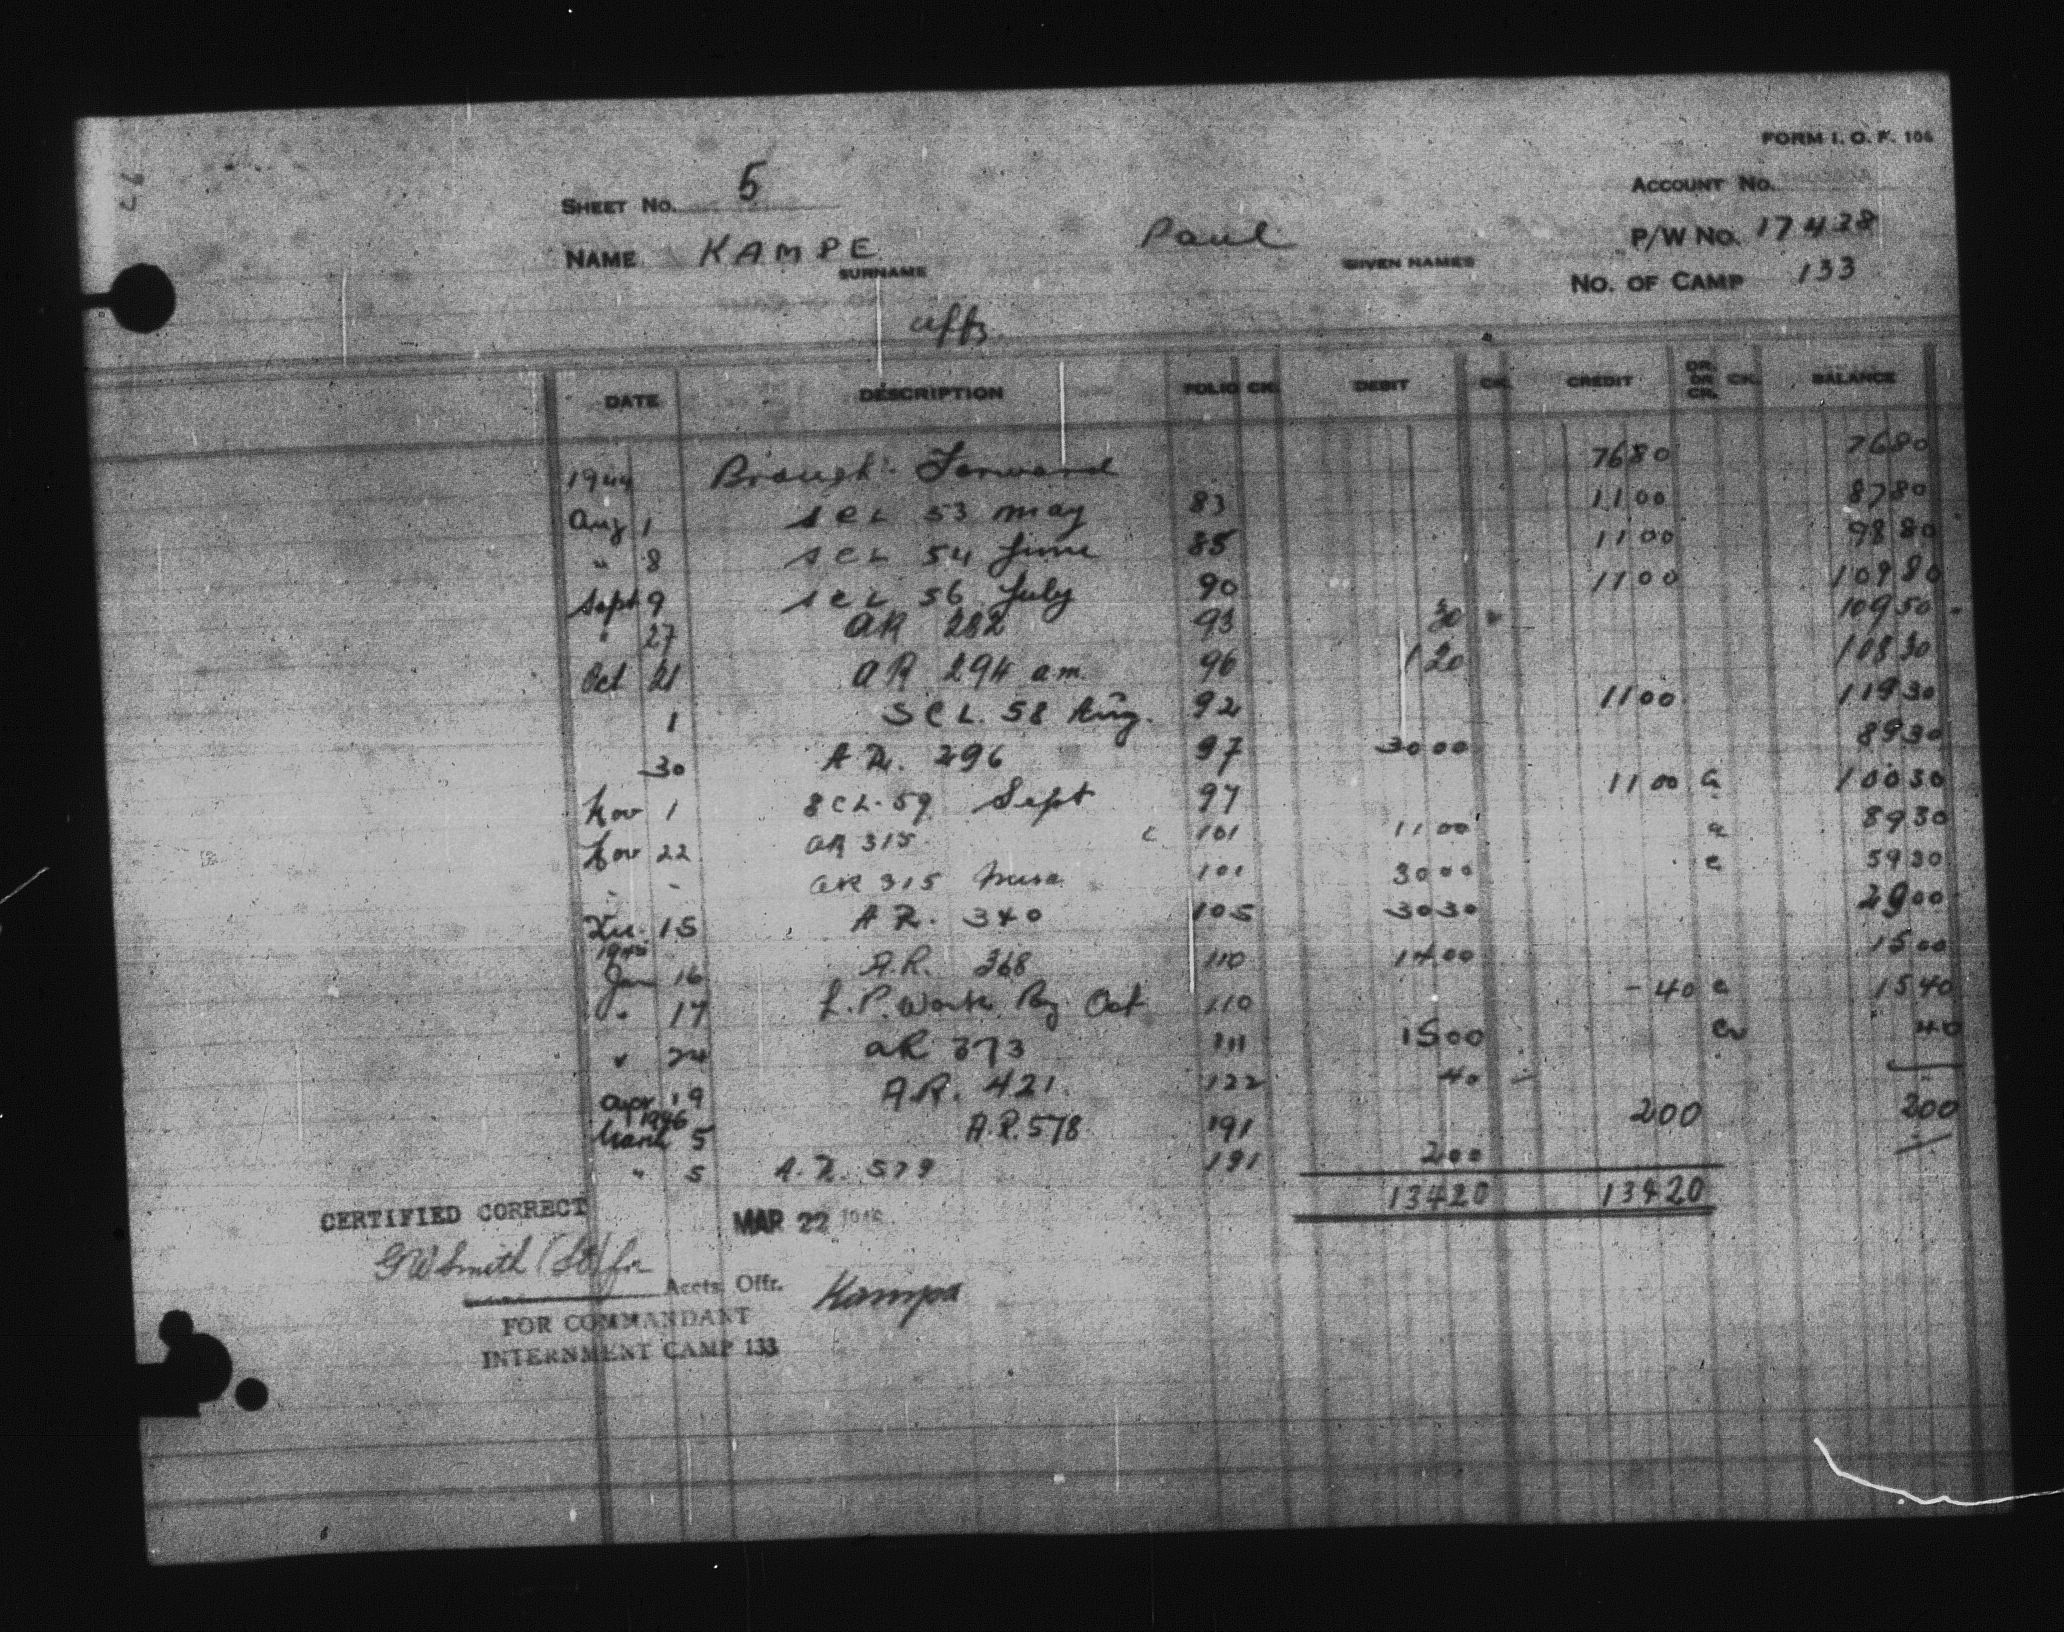 FORM I. O. F. 106
SHEET NO. 5 ACCOUNT NO.
NAME KAMPE Paul P/W NO. 17428
SURNAME GIVEN NAMES NO. OF CAMP 133
DATE DESCRIPTION FOLIO CK. DEBIT CK. CREDIT OR. DR. CR. CK. BALANCE
1944 Brought Forward 7680 7680
Aug 1 SCL 53 May 83 1100 8780
" 8 SCL 54 June 85 1100 9880
Sept 9 SCL 56 July 90 1100 10980
" 27 AR 282 93 30 10950
Oct 21 AR 294 a.m. 96 120 10830
1 SCL. 58 Aug. 92 1100 11930
30 A.R. 296 97 3000 8930
Nov 1 SCL. 59 Sept 97 1100 10030
Nov 22 AR 315 c 101 1100 8930
" " AR 315 101 3000 5930
15 A.R. 340 105 3030 2900
1945
Jan 16 A.R. 368 110 1400 1500
" 17 L.P. Work Pay Oct 110 - 40 1540
" 24 AR 373 111 1500 Cr 40
Apr 19 A.R. 421. 122 40 —
1946
March 5 A.R. 578 191 200 200
" 5 A.R. 579 191 200 —
13420 13420
CERTIFIED CORRECT MAR 22 1946
GW Smith (Lt) for
Accts. Offr. Kampe
FOR COMMANDANT
INTERNMENT CAMP 133